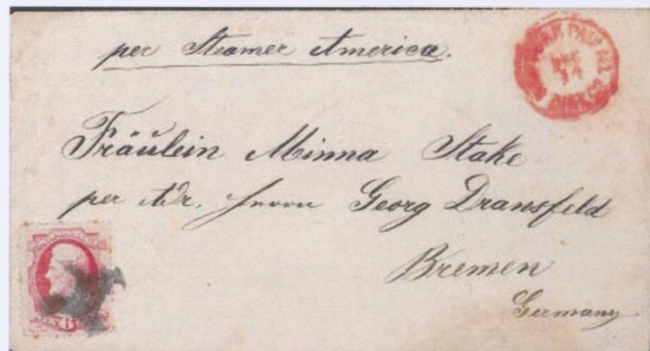 per Steamer America.
PAID ALL
DIRECT
Fräulein Minna Stake
per Adr. Herrn Georg Dransfeld
Bremen
Germany
6